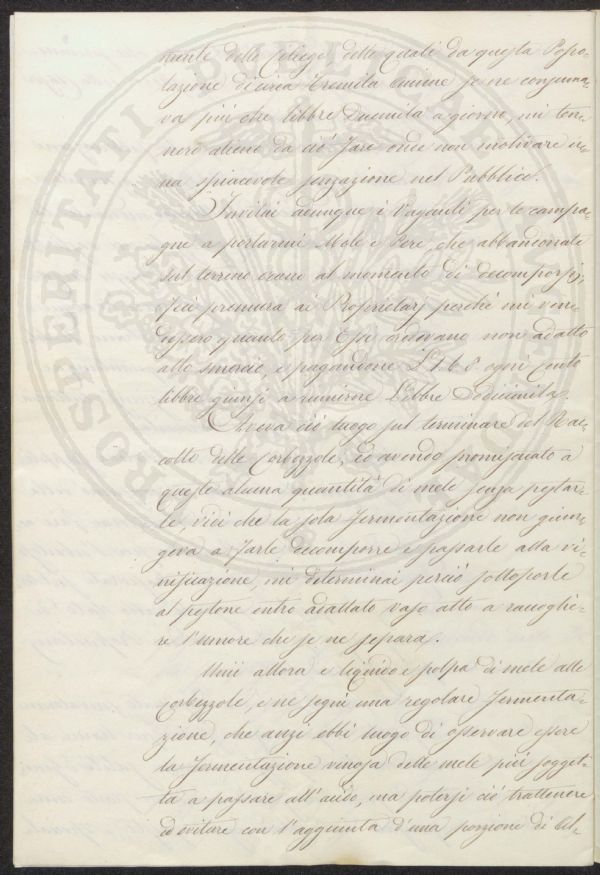 mente delle ciliege, delle quali da questa Popo-
lazione di circa tremila anime se ne consuma-
va più che libbre Duemila a giorno, mi ten-
nero alieno da ciò fare onde non motivare u-
na spiacevole sensazione nel Pubblico.
Invitai adunque i Vaganti per le campa-
gne a portarmi Mele e Pere, che abbandonate
sul terreno erano al momento di decomporsi,
feci premura ai Proprietarj perché mi ven-
dessero quanto per essi credevano non adatto
allo smercio, e pagandone ogni cento
libbre giunsi a riunirne Libbre Dodicimila.
Aveva ciò luogo sul terminare del Rac-
colto delle Corbezzole, ed avendo promiscuato a
queste alcuna quantità di mele senza pestar-
le, vidi che la sola fermentazione non giun-
geva a farle decomporre e passarle alla vi-
nificazione, mi determinai perciò sottoporle
al pestone entro adattato vaso atto a raccoglie-
re l'umore che se ne separa.
Unii allora e liquido e polpa di mele alle
Corbezzole, e ne seguì una regolare fermenta-
zione, che anzi ebbi luogo di osservare essere
la fermentazione vinosa delle mele più sogget-
ta a passare all'acido, ma potersi ciò trattenere
ed evitare con l'aggiunta d'una porzione di
PROSPERITATI PUBLICAE